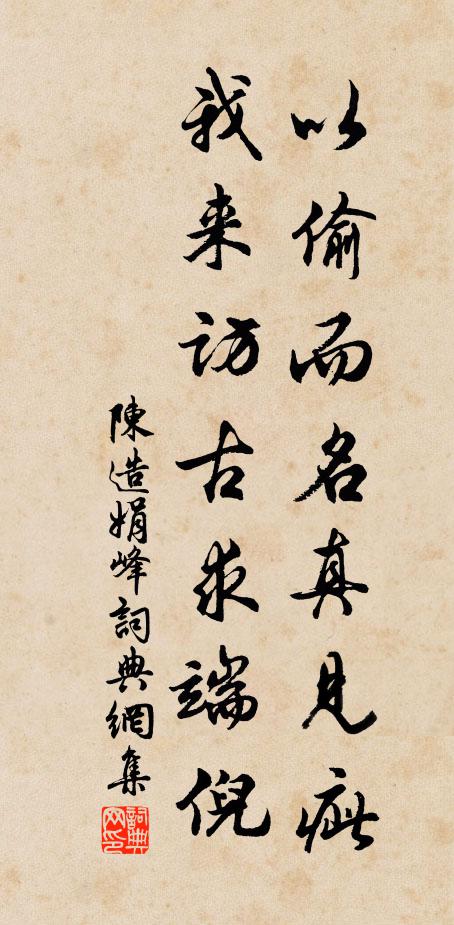 以偷而名真見疵
我来訪古求端倪
陳造娟峰詞典網集
詞典网印